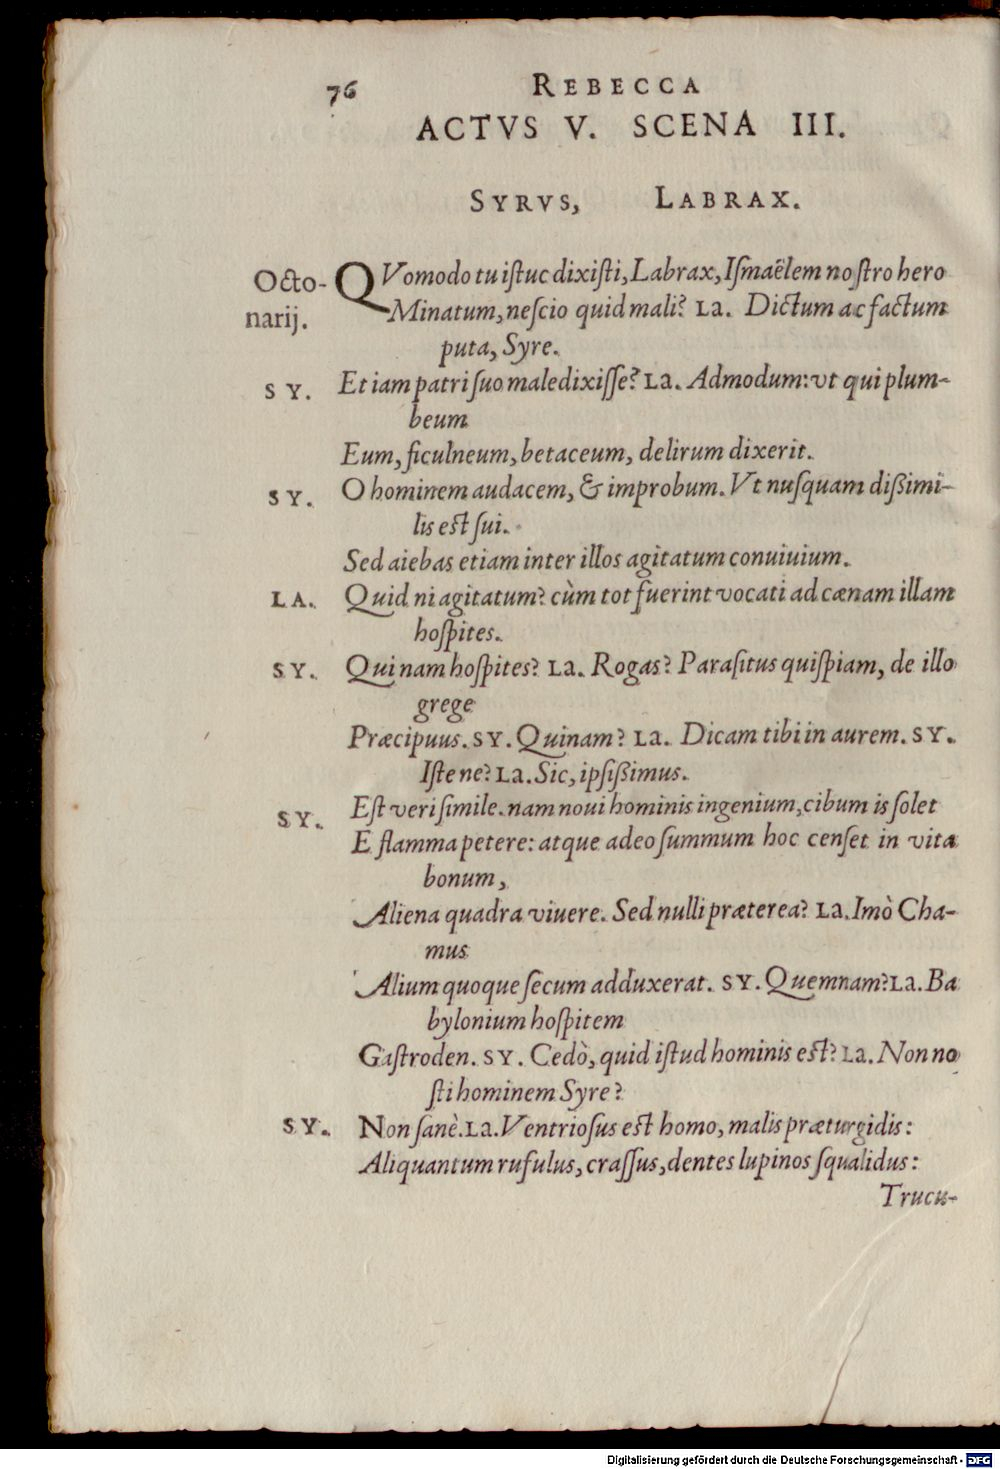 76 REBECCA
ACTVS V. SCENA III.
SYRVS, LABRAX.
Octo- QVomodo tu iſtuc dixiſti, Labrax, Iſmaëlem noſtro hero
narij. Minatum, neſcio quid mali? LA. Dictum ac factum
puta, Syre.
SY. Et iam patri ſuo maledixiſſe? LA. Admodum: vt qui plum-
beum
Eum, ficulneum, betaceum, delirum dixerit.
SY. O hominem audacem, & improbum. Vt nuſquam dißimi-
lis eſt ſui.
Sed aiebas etiam inter illos agitatum conuiuium.
LA. Quid ni agitatum? cùm tot fuerint vocati ad cænam illam
hoſpites.
SY. Qui nam hoſpites? LA. Rogas? Paraſitus quiſpiam, de illo
grege
Præcipuus. SY. Quinam? LA. Dicam tibi in aurem. SY.
Iſte ne? LA. Sic, ipſißimus.
SY. Eſt veri ſimile. nam noui hominis ingenium, cibum is ſolet
E flamma petere: atque adeo ſummum hoc cenſet in vita
bonum,
Aliena quadra viuere. Sed nulli præterea? LA. Imò Cha-
mus
Alium quoque ſecum adduxerat. SY. Quemnam? LA. Ba
bylonium hoſpitem
Gaſtroden. SY. Cedò, quid iſtud hominis eſt? LA. Non no
ſti hominem Syre?
SY. Non ſanè. LA. Ventrioſus eſt homo, malis præturgidis:
Aliquantum rufulus, craſſus, dentes lupinos ſqualidus:
Trucu-
Digitalisierung gefördert durch die Deutsche Forschungsgemeinschaft - DFG